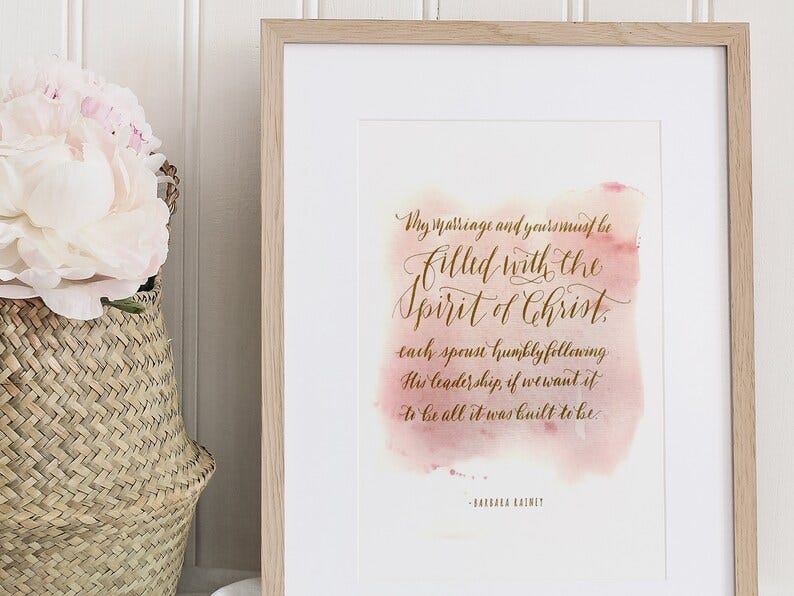 My marriage and yours must be
filled with the
Spirit of Christ,
each spouse humbly following
His leadership, if we want it
to be all it was built to be.
-BARBARA RAINEY